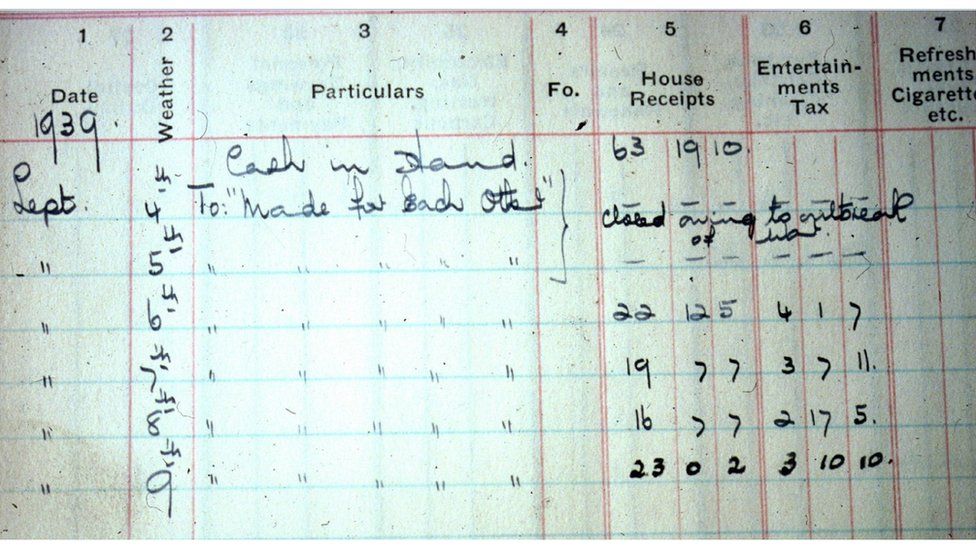 1 2 3 4 5 6 7
Date Weather Particulars Fo. House Receipts Entertain-ments Tax Refresh ments Cigarette etc.
1939.
Cash in Hand. 63 19 10.
Sept. 4 f. To: "Made for Each Other" closed owing to outbreak of war.
" 5 f. " " " " " — — — — — —
" 6 f. " " " " " 22 12 5 4 1 7
" 7 f. " " " " " 19 7 7 3 7 11.
" 8 f. " " " " " 16 7 7 2 17 5.
" 9 f. " " " " " 23 0 2 3 10 10.